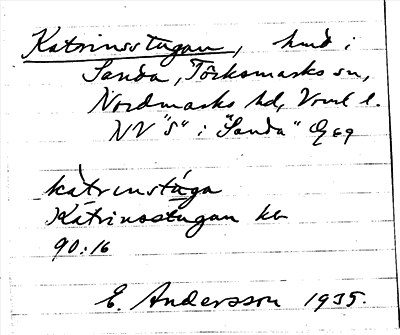 Katrinsstugan, hmd i
Sanda, Töcksmarks sn,
Nordmarks hd, Vrml l.
NV "S" i "Sanda" Eg 69
katrinstuga
Katrinsstugan kb
90:16
E. Andersson 1935.